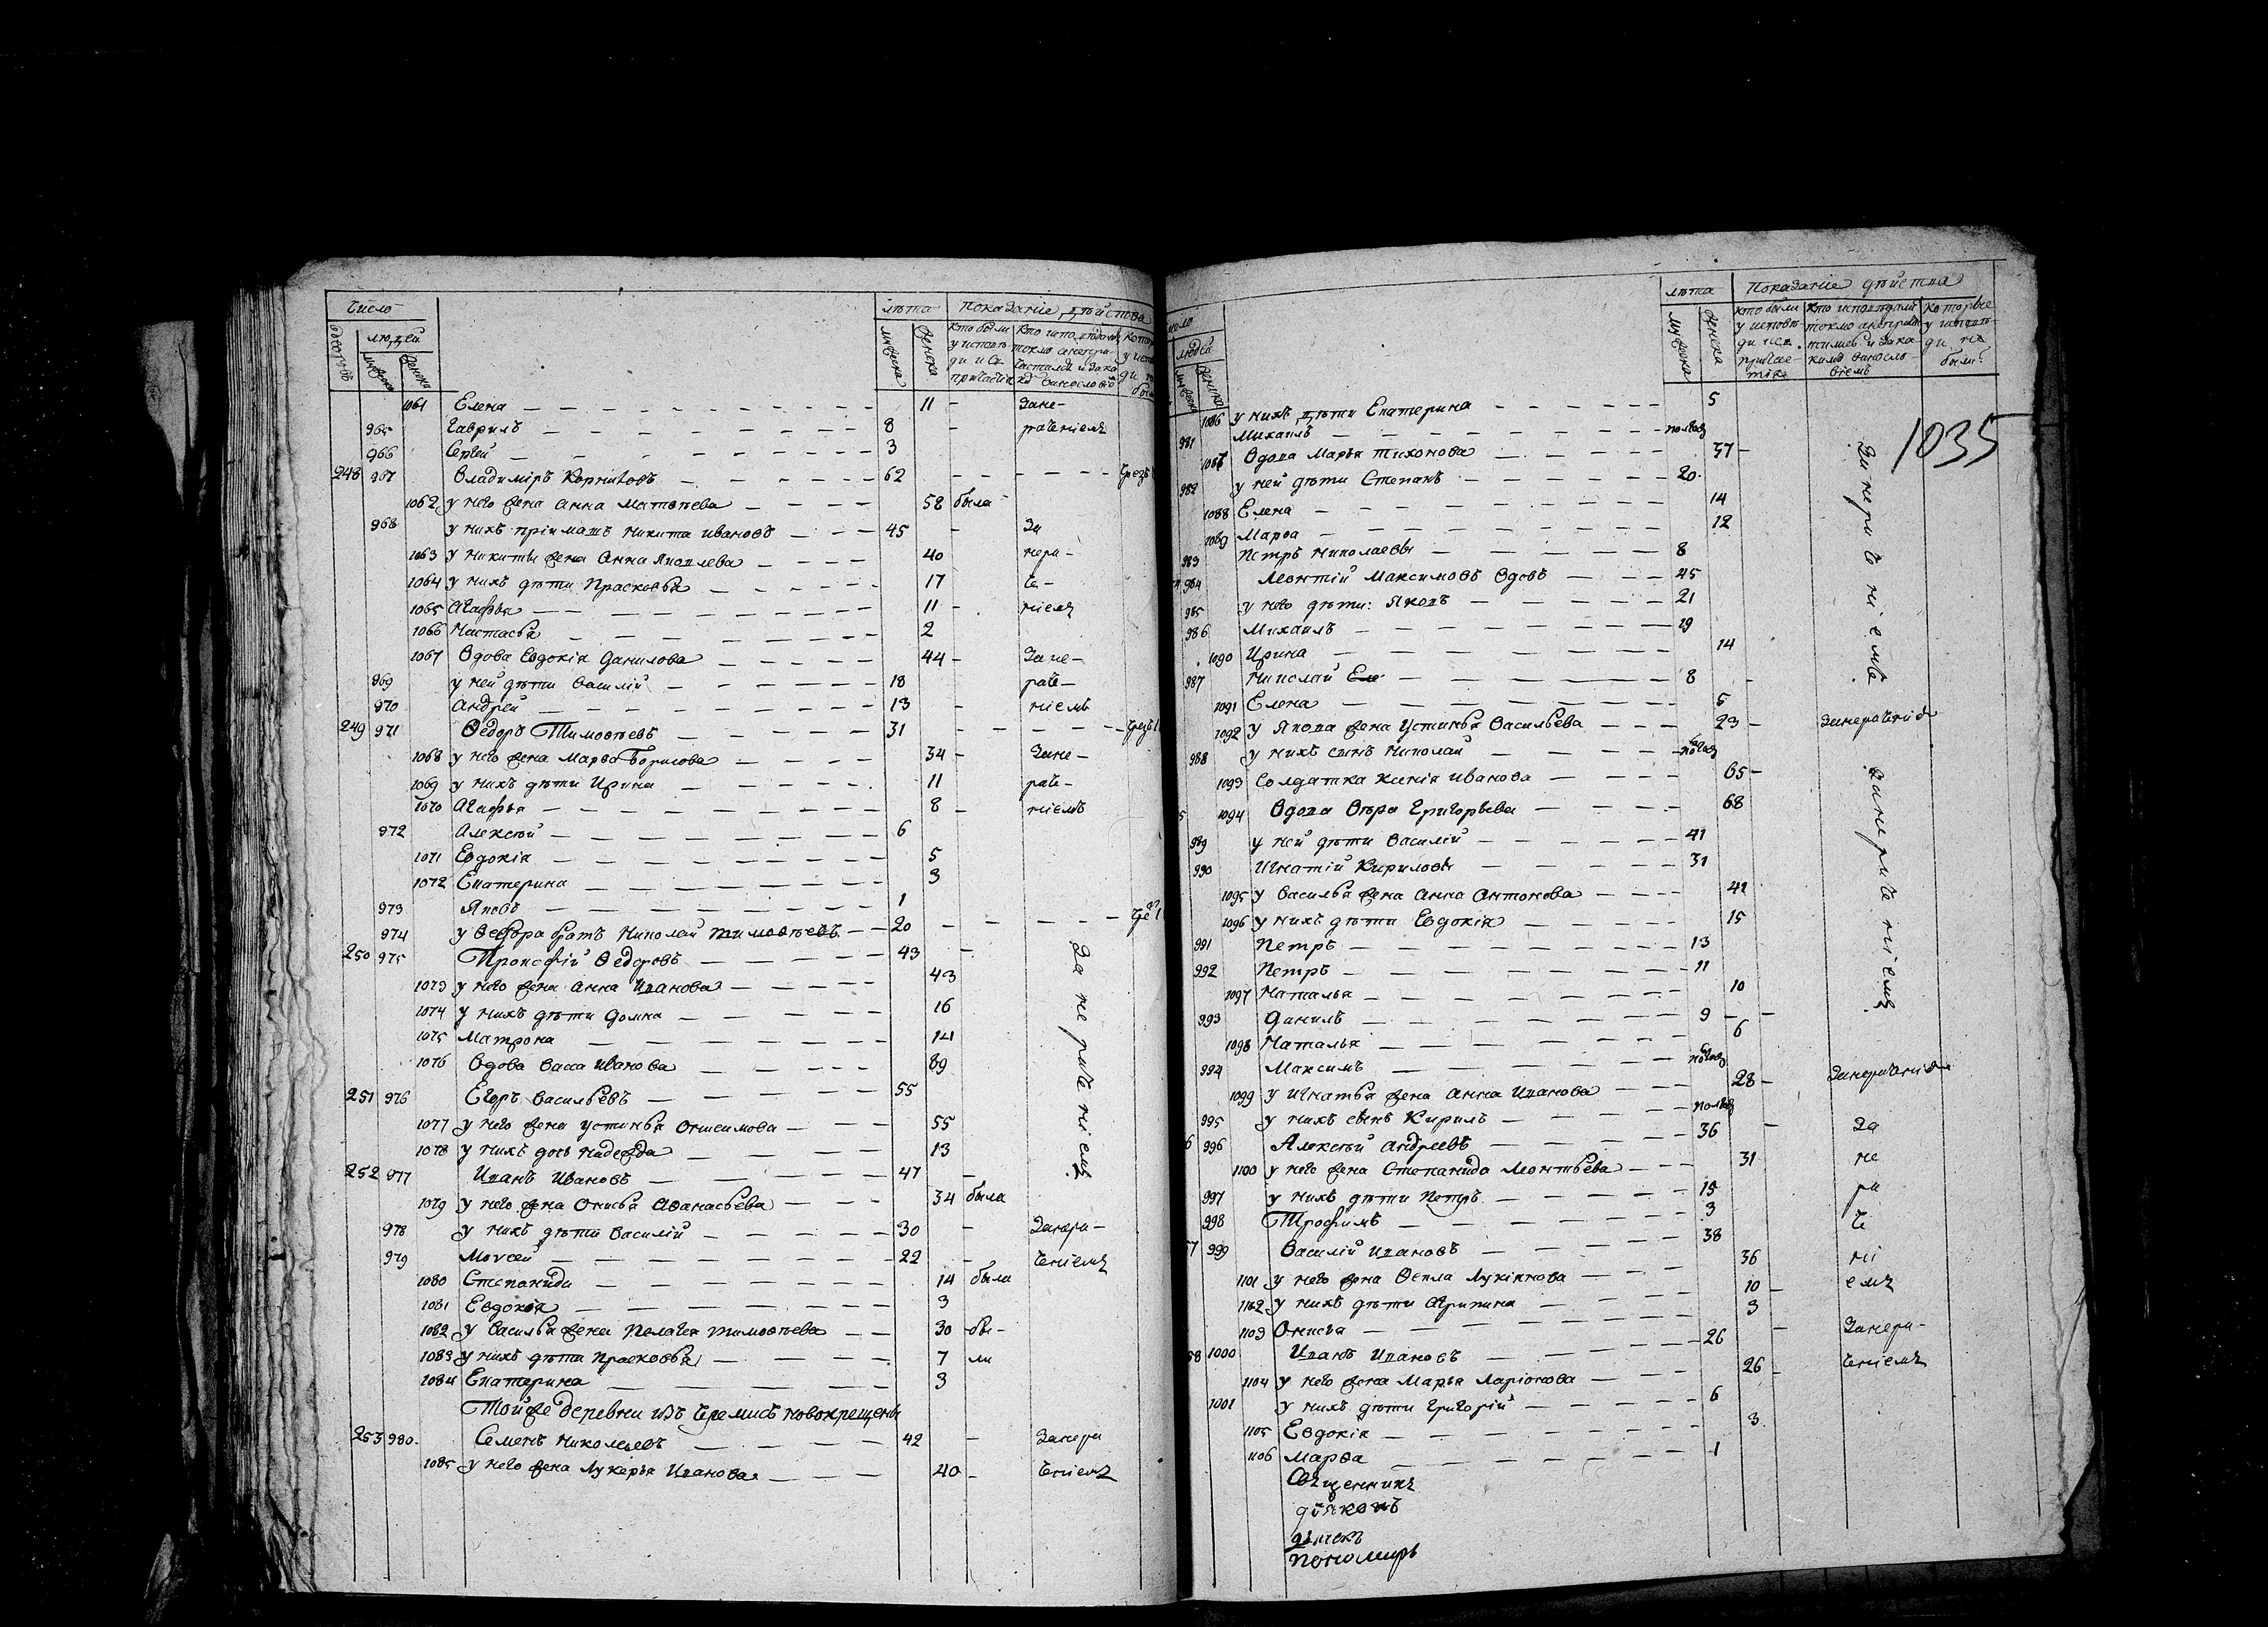 Число
лѣта Показаніе дѣйства
дворовъ людей
мужеска женска
мужеска женска
1061 Елена 11 - Зане-
965 Гаврилъ 8 - раченіемъ
966 Сергей 3
248 967 Владиміръ Корниловъ 62
1062 у него жена Анна Матвѣева 58 была
968 у нихъ пріимашъ Никита Ивановъ 45 - За
1063 у Никиты жена Анна Яковлева 40 нера-
1064 у нихъ дѣти Прасковья 17 че-
1065 Агафья 11 - ніемъ
1066 Настасья 2
1067 Вдова Евдокія Данилова 44 - Зане-
969 у ней дѣти Василій 18 раче-
970 Андрей 13 - ніемъ
249 971 Ѳедоръ Тимоѳеевъ 31
1068 у него жена Марѳа Борисова 34 - Зане-
1069 у нихъ дѣти Ирина 11 раче-
1070 Агафья 8 - ніемъ
972 Алексѣй 6
1071 Евдокія 5
1072 Екатерина 3
973 Яковъ 1
974 у Ѳедора братъ Николай Тимоѳеевъ 20
250 975 Прокофій Ѳедоровъ 43
1073 у него жена Анна Иванова 43
1074 у нихъ дѣти Домна 16
1075 Матрона 14
1076 Вдова Васса Иванова 69
За нераченіемъ
251 976 Егоръ Васильевъ 55
1077 у него жена Устинья Онисимова 55
1078 у нихъ дочь Надежда 13
252 977 Иванъ Ивановъ 47
1079 у него жена Онисья Аѳанасьева 34 была
978 у нихъ дѣти Василій 30 - Занера-
979 Моvсей 22 - ченіемъ
1080 Степанида 14 была
1081 Евдокія 3
1082 у Василья жена Пелагея Тимоѳеева 30 бы-
1083 у нихъ дѣти Прасковья 7 ли
1084 Екатерина 3
Тойже деревни изъ Черемисъ новокрещены
253 980 Семенъ Николаевъ 42 - Занера
1085 у него жена Лукерья Иванова 40 - ченіемъ
лѣта Показаніе дѣйства
людей
мужеска женска
мужеска женска
1035
1086 у нихъ дѣти Екатерина 5
981 Михаилъ полгод
1087 Вдова Марья Тихонова 37 -
982 у ней дѣти Степанъ 20
1088 Елена 14
1089 Марѳа 12
983 Петръ Николаевы 8
984 Леонтій Максимовъ Вдовъ 45
985 у него дѣти: Яковъ 21
986 Михаилъ 19
1090 Ирина 14
987 Николай 8
1091 Елена 5
Занераченіемъ
1092 у Якова жена Устинья Васильева 23 - Занераченіе
988 у нихъ сынъ Николай полгод
1093 Солдатка Ксенія Иванова 65 -
1094 Вдова Вѣра Григорьева 68
989 у ней дѣти Василій 41
990 Игнатій Кириловы 31
1095 у Василья жена Анна Антонова 41
1096 у нихъ дѣти Евдокія 15
991 Петръ 13
992 Петръ 11
1097 Наталья 10
993 Данилъ 9
1098 Наталья 6
994 Максимъ полгод
Занераченіемъ
1099 у Игнатья жена Анна Иванова 28 - Занераченіе
995 у нихъ сынъ Кирилъ полгод
996 Алексѣй Андреевъ 36 - За
1100 у него жена Степанида Леонтьева 31 не
997 у нихъ дѣти Петръ 15 ра
998 Трофимъ 3 че
999 Василій Ивановъ 38
1101 у него жена Ѳекла Лукіянова 36 ні
1102 у нихъ дѣти Агрипина 10 - емъ
1103 Онисья 3
1000 Иванъ Ивановъ 26 - Занера-
1104 у него жена Марья Ларіонова 26 - ченіемъ
1001 у нихъ дѣти Григорій 6
1105 Евдокія 3
1106 Марѳа 1
Священникъ
діяконъ
дьячекъ
пономарь